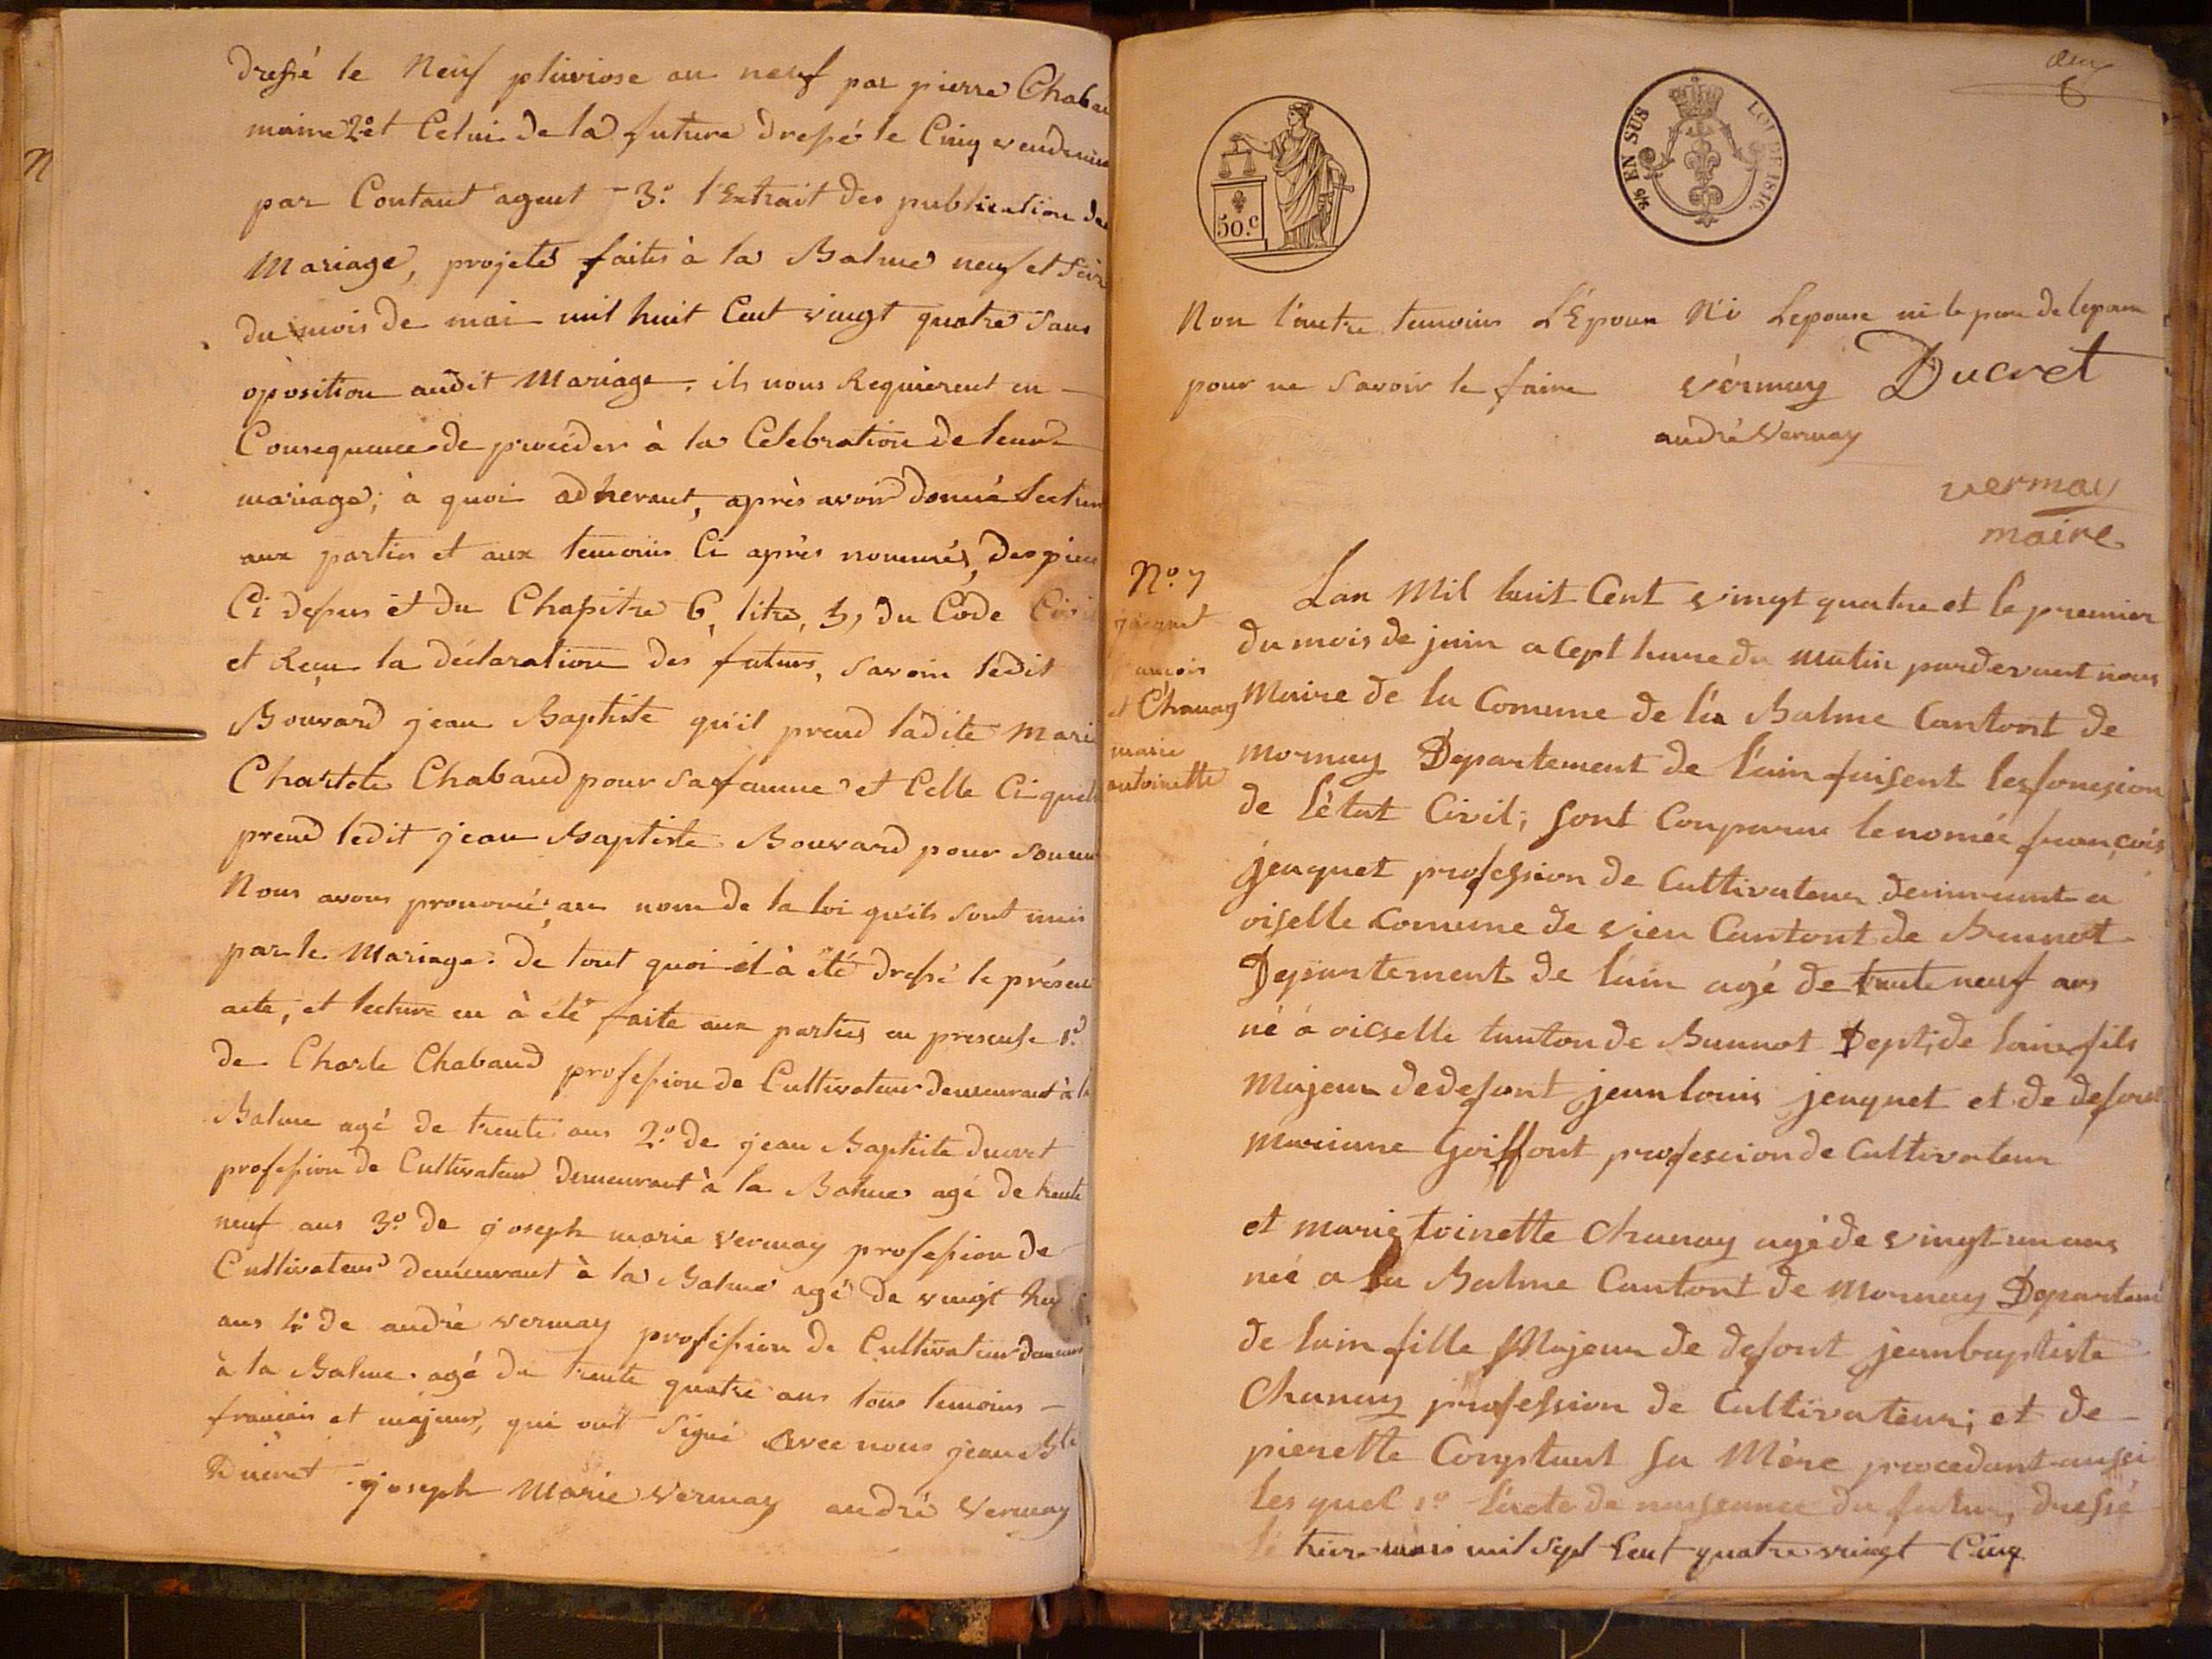 dressé le Neuf pluviose an neuf par pierre Chabau
maire 2º et Celui de la future dressé le Cinq vendemia
par Contant agent - 3º. l'Extrait des publication de
Mariage, projeté faites à la Balme neuf et Seiz
du mois de mai mil huit Cent vingt quatre Sans
oposition audit Mariage. ils nous Requierent en -
Consequence de procéder à la Celebration de leur
mariage; à quoi adherant, après avoir donné lectur
aux parties et aux temoins Ci après nommés, des piec
Ci dessus et du Chapitre 6, titre, 5, du Code Civil
et Reçu la déclaration des futurs, Savoir ledit
Bouvard jean Baptiste qu'il prend ladite Mari
Charlote Chabaud pour Sa femme et Celle Ci quell
prend ledit jean Baptiste Bouvard pour Son
Nous avons prononcé au nom de la loi qu'ils Sont unis
par le Mariage. de tout quoi il à été dressé le présent
acte, et lecture en à été faite aux parties en presense 1º
de Charle Chabaud profession de Cultivateur demeurant à l
Balme agé de trente ans 2º. de jean Baptiste ducret
profession de Cultivateur Demeurant à la Balme agé de trente
neuf ans 3º. de joseph marie vermay profession de
Cultivateur demeurant à la Balme agé de vingt
ans 4º de andré vermay profession de Cultivateur
à la Balme. agé de trente quatre ans tous temoins -
francais et majeurs, qui ont Signé Avec nous jean Bte
Ducret joseph Marie Vermay andré Vermay
6
50.C
EN SUS
LOI DE 1816.
Non l'autre temoins L'Epoux Ni Lepouse ni le pere de lepouse
pour ne Savoir le faire vérmay Ducret
andré Vermay
vermay
maire
Nº. 7
jaquet
ançois
et Chanay
marie
antoinette
Lan Mil huit Cent vingt quatre et le premier
du mois de juin a cept hure du matin pardevant nous
Maire de la Comune de la Balme Cantont de
mornay Departement de l'ain faisent les foncsion
de L'êtat Civil; Sont Conparue le nomée françois
jeaquet profession de Cultivateur demeurant a
oiselle Comune de vieu Cantont de Brunot
Departement de lain agé de trente neuf ans
né á oicselle Canton de Bunnot Dept; de lain fils
Majeur dedefont jean louis jeaquet et de defont
Marianne Goiffont professcion de Cultivateur
et marie toinette Chanay agé de vingt un ans
née a la Balme Cantont de Mornay Departeme
de lain fille Majeur de defont jeanbaptiste
Chanay profession de Cultivateur; et de
pierette Conptant Sa Mère procedant aussi
les quel 1º l'acte de naissance du futur, dressé
le treize mars mil sept Cent quatre vingt Cinq